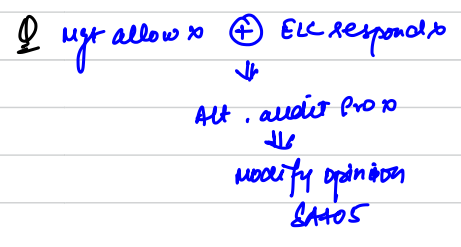 Q Mgt allow x ⊕ ELC respond x
⇓
Alt. audit Pro x
⇓
Modify opinion
SA705